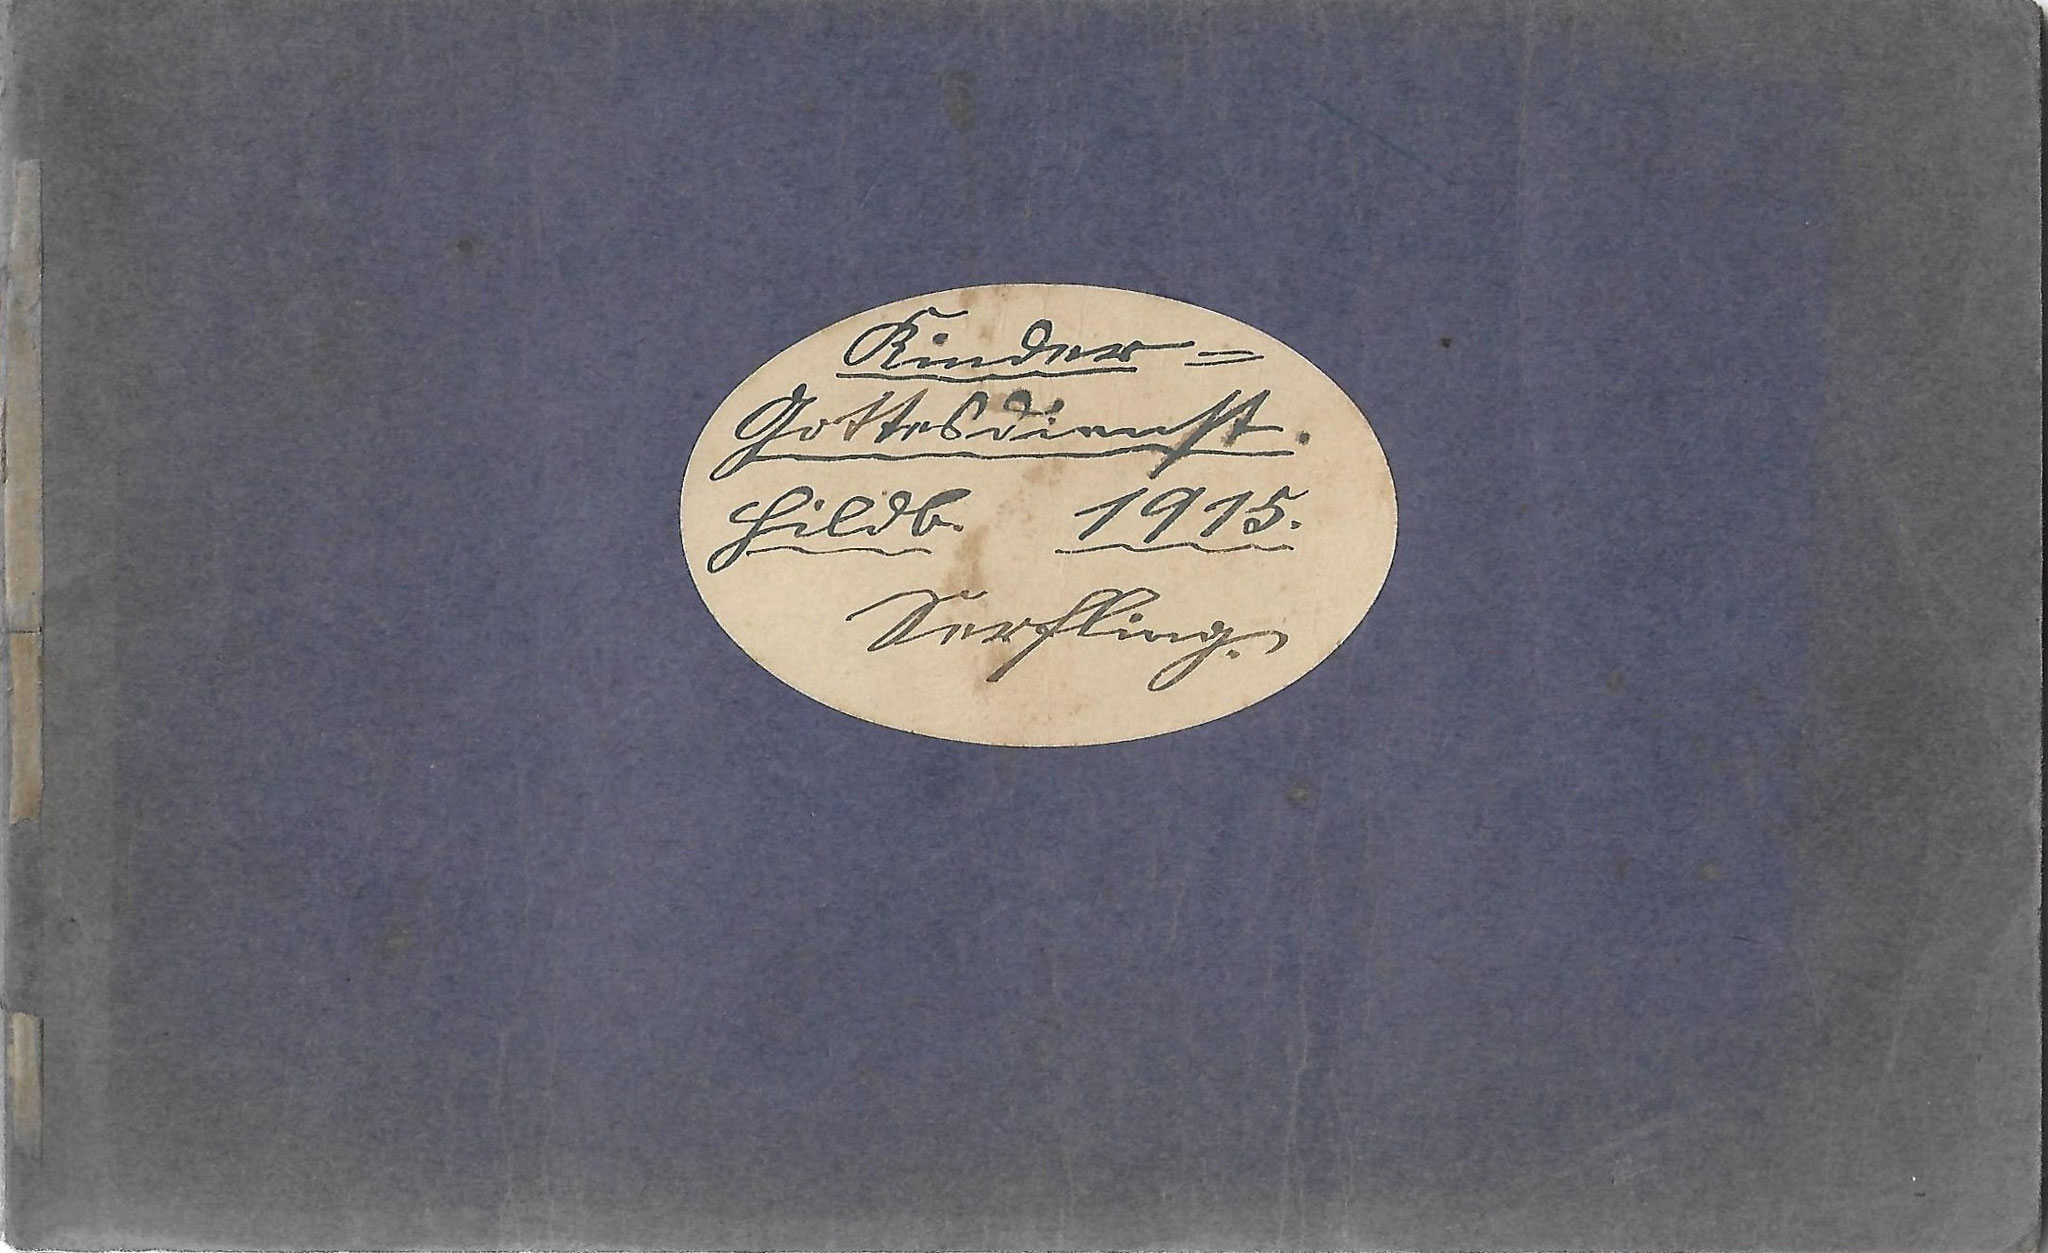 Kinder=
Gottesdienst.
Hildb. 1915.
Serfling.